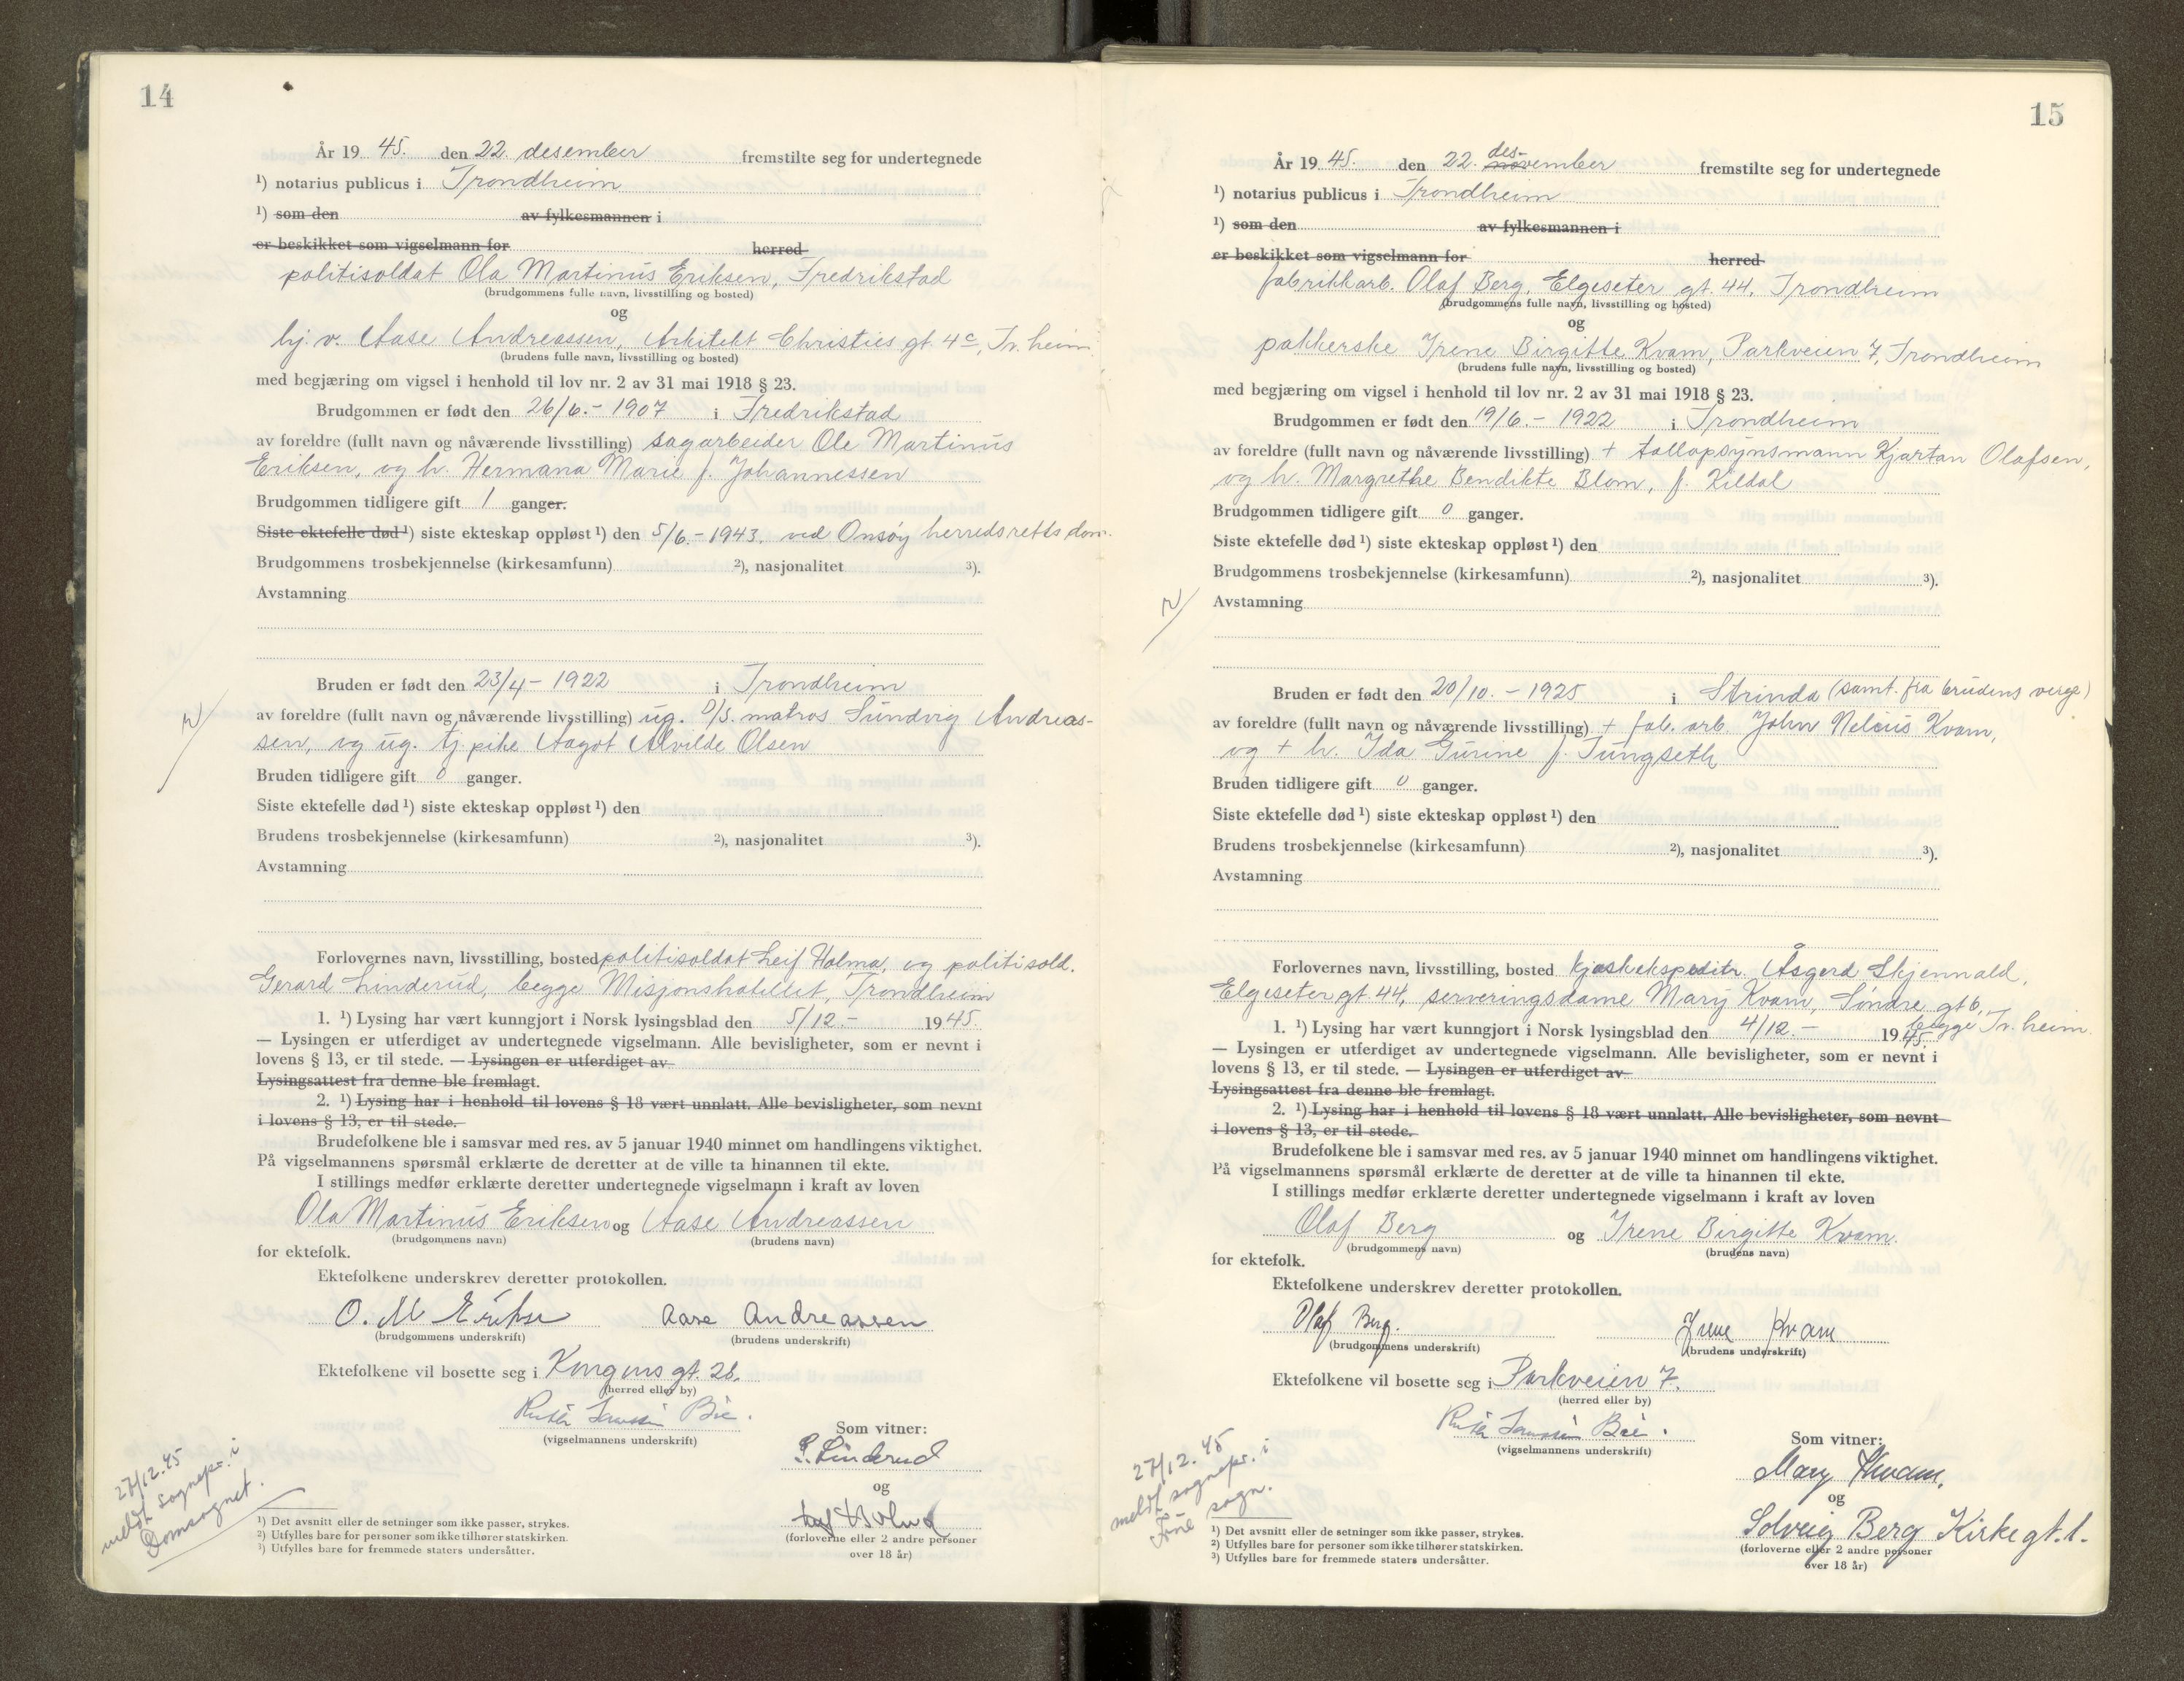 14
År 19 45. den 22. desember fremstilte seg for undertegnede
¹) notarius publicus i Trondheim
¹) som den av fylkesmannen i
er beskikket som vigselmann for herred
politisoldat Ola Martinus Eriksen, Fredrikstad
(brudgommens fulle navn, livsstilling og bosted)
og
hj. v. Aase Andreassen, Arkitekt Christies gt. 4c, Tr.heim
(brudens fulle navn, livsstilling og bosted)
med begjæring om vigsel i henhold til lov nr. 2 av 31 mai 1918 § 23.
Brudgommen er født den 26/6.- 1907 i Fredrikstad
av foreldre (fullt navn og nåværende livsstilling) sagarbeider Ole Martinus
Eriksen, og h. Hermana Marie f. Johannessen
Brudgommen tidligere gift 1 ganger.
Siste ektefelle død ¹) siste ekteskap oppløst ¹) den 5/6.- 1943. ved Onsøy herredsretts dom.
Brudgommens trosbekjennelse (kirkesamfunn) ²), nasjonalitet ³).
Avstamning
Bruden er født den 23/4- 1922 i Trondheim
av foreldre (fullt navn og nåværende livsstilling) ug. D/S. matros Sundvig Andreas-
sen, og ug. tj.pike Aagot Alvilde Olsen
Bruden tidligere gift 0 ganger.
Siste ektefelle død ¹) siste ekteskap oppløst ¹) den
Brudens trosbekjennelse (kirkesamfunn) ²), nasjonalitet ³).
Avstamning
Forlovernes navn, livsstilling, bosted politisoldat Leif Holma, og politisold.
Gerard Linderud, begge Misjonshotellet, Trondheim
1. ¹) Lysing har vært kunngjort i Norsk lysingsblad den 5/12.- 1945.
— Lysingen er utferdiget av undertegnede vigselmann. Alle bevisligheter, som er nevnt i
lovens § 13, er til stede. — Lysingen er utferdiget av
Lysingsattest fra denne ble fremlagt.
2. ¹) Lysing har i henhold til lovens § 18 vært unnlatt. Alle bevisligheter, som nevnt
i lovens § 13, er til stede.
Brudefolkene ble i samsvar med res. av 5 januar 1940 minnet om handlingens viktighet.
På vigselmannens spørsmål erklærte de deretter at de ville ta hinannen til ekte.
I stillings medfør erklærte deretter undertegnede vigselmann i kraft av loven
Ola Martinus Eriksen og Aase Andreassen
(brudgommens navn) (brudens navn)
for ektefolk.
Ektefolkene underskrev deretter protokollen.
O. M Erikse Aase Andreassen
(brudgommens underskrift) (brudens underskrift)
Ektefolkene vil bosette seg i Kongens gt. 26.
(herred eller by)
Som vitner:
(vigselmannens underskrift)
G. Linderud
og
(forloverne eller 2 andre personer
over 18 år)
27/12.45
meldt sognepr. i
Domsognet.
¹) Det avsnitt eller de setninger som ikke passer, strykes.
²) Utfylles bare for personer som ikke tilhører statskirken.
³) Utfylles bare for fremmede staters undersåtter.
15
År 19 45. den 22. des-
november fremstilte seg for undertegnede
¹) notarius publicus i Trondheim
¹) som den av fylkesmannen i
er beskikket som vigselmann for herred
fabrikkarb. Olaf Berg, Elgeseter gt. 44, Trondheim
(brudgommens fulle navn, livsstilling og bosted)
og
pakkerske Irene Birgitte Kvam, Parkveien 7, Trondheim
(brudens fulle navn, livsstilling og bosted)
med begjæring om vigsel i henhold til lov nr. 2 av 31 mai 1918 § 23.
Brudgommen er født den 19/6.- 1922 i Trondheim
av foreldre (fullt navn og nåværende livsstilling) + tollopsynsmann Kjartan Olafsen,
og h. Margrethe Bendikte Blom, f. Kildal
Brudgommen tidligere gift 0 ganger.
Siste ektefelle død ¹) siste ekteskap oppløst ¹) den
Brudgommens trosbekjennelse (kirkesamfunn) ²), nasjonalitet ³).
Avstamning
Bruden er født den 20/10.- 1925 i Strinda (samt. fra brudens verge)
av foreldre (fullt navn og nåværende livsstilling) + fab. arb. John Nelius Kvam,
og + h. Ida Gurine f. Tungseth
Bruden tidligere gift 0 ganger.
Siste ektefelle død ¹) siste ekteskap oppløst ¹) den
Brudens trosbekjennelse (kirkesamfunn) ²), nasjonalitet ³).
Avstamning
Forlovernes navn, livsstilling, bosted kjoskekspeditr. Åsgerd Skjennald,
Elgeseter gt 44, serveringsdame Mary Kvam, Söndre gt 6,
begge Tr.heim
1. ¹) Lysing har vært kunngjort i Norsk lysingsblad den 4/12.- 1945.
— Lysingen er utferdiget av undertegnede vigselmann. Alle bevisligheter, som er nevnt i
lovens § 13, er til stede. — Lysingen er utferdiget av
Lysingsattest fra denne ble fremlagt.
2. ¹) Lysing har i henhold til lovens § 18 vært unnlatt. Alle bevisligheter, som nevnt
i lovens § 13, er til stede.
Brudefolkene ble i samsvar med res. av 5 januar 1940 minnet om handlingens viktighet.
På vigselmannens spørsmål erklærte de deretter at de ville ta hinannen til ekte.
I stillings medfør erklærte deretter undertegnede vigselmann i kraft av loven
Olaf Berg og Irene Birgitte Kvam.
(brudgommens navn) (brudens navn)
for ektefolk.
Ektefolkene underskrev deretter protokollen.
Olaf Berg. Irene Kvam
(brudgommens underskrift) (brudens underskrift)
Ektefolkene vil bosette seg i Parkveien 7.
(herred eller by)
Som vitner:
(vigselmannens underskrift)
Mary Kvam.
og
Solveig Berg Kirkegt. 1.
(forloverne eller 2 andre personer
over 18 år)
27/12.45
meldt sognepr. i
sogn.
¹) Det avsnitt eller de setninger som ikke passer, strykes.
²) Utfylles bare for personer som ikke tilhører statskirken.
³) Utfylles bare for fremmede staters undersåtter.